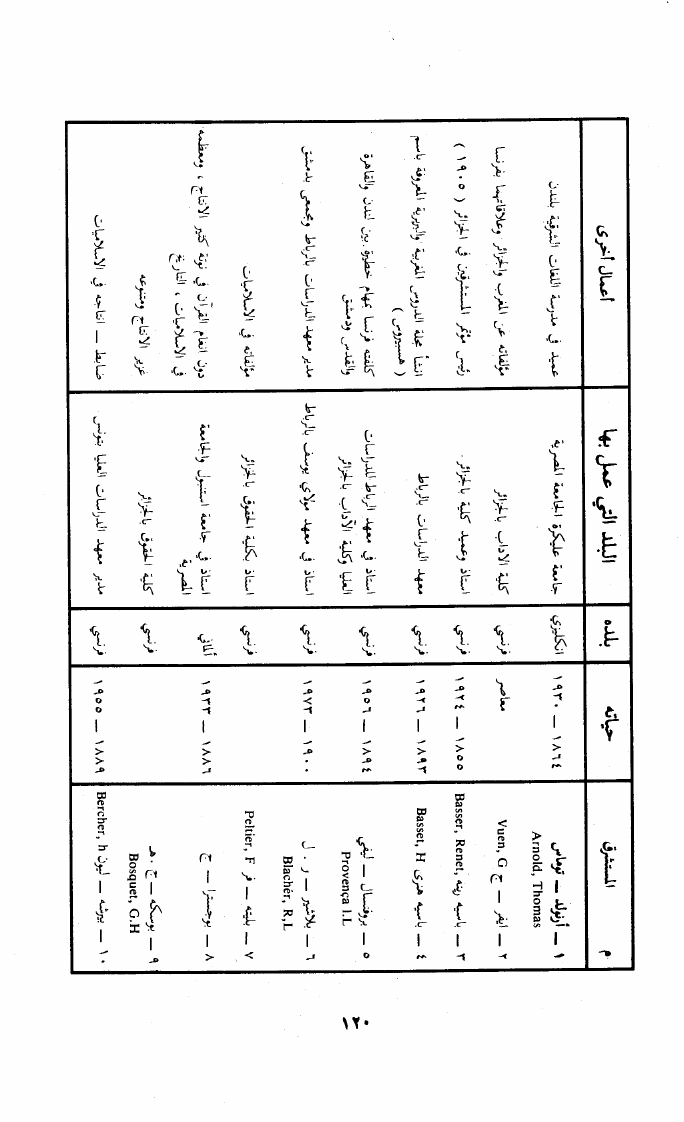 م المستشرق حياته بلده البلد التي عمل بها أعمال أخرى
١ – أرنولد – توماس ١٨٦٤ – ١٩٣٠ انكليزي جامعة عليكرة الجامعة المصرية عميد في مدرسة اللغات الشرقية بلندن
Arnold, Thomas
٢ – ايفر – ج Vuen, G معاصر فرنسي كلية الاداب بالجزائر مؤلفاته عن المغرب والجزائر وعلاقاتهما بفرنسا
٣ – باسيه رينه Basser, Renet, ١٨٥٥ – ١٩٢٤ فرنسي استاذ وعميد كلية بالجزائر. رئيس مؤتمر المستشرقين في الجزائر ( ١٩٠٥ )
٤ – باسيه هنرى Basset, H ١٨٩٣ – ١٩٢٦ فرنسي معهد الدراسات بالرباط انشأ مجلة الدروس المغربية والبربرية المعروفة باسم
( هسبيروس )
٥ – بروفنسال – ليفي ١٨٩٤ – ١٩٥٦ فرنسي استاذ في معهد الرباط للدراسات كلفته فرنسا بمهام خطيرة بين لندن والقاهرة
Provença l.L العليا وكلية الآداب بالجزائر والقدس ودمشق
٦ – بلاشير – ر . ل ١٩٠٠ – ١٩٧٣ فرنسي استاذ في معهد مولاي يوسف بالرباط مدير معهد الدراسات بالرباط ومجمعى بدمشق
Blachèr, R,L
٧ – بلتيه – فر Peltier, F فرنسي استاذ بكلية الحقوق بالجزائر مؤلفاته في الاسلاميات
٨ – بوجسترا – ج ١٨٨٦ – ١٩٣٣ ألماني استاذ في جامعة استنبول والجامعة دون انغام القرآن في نوتة كثير الانتاج ، ومعظمه
المصرية في الاسلاميات ، التاريخ
٩ – بوسكه – ج. هـ فرنسي كلية الحقوق بالجزائر غزير الانتاج ومتنوعه
Bosquet, G.H
١٠ – بيرشه – ليون Bercher, h ١٨٨٩ – ١٩٥٥ فرنسي مدير معهد الدراسات العليا بتونس ضابط – انتاجه في الاسلاميات
١٢٠